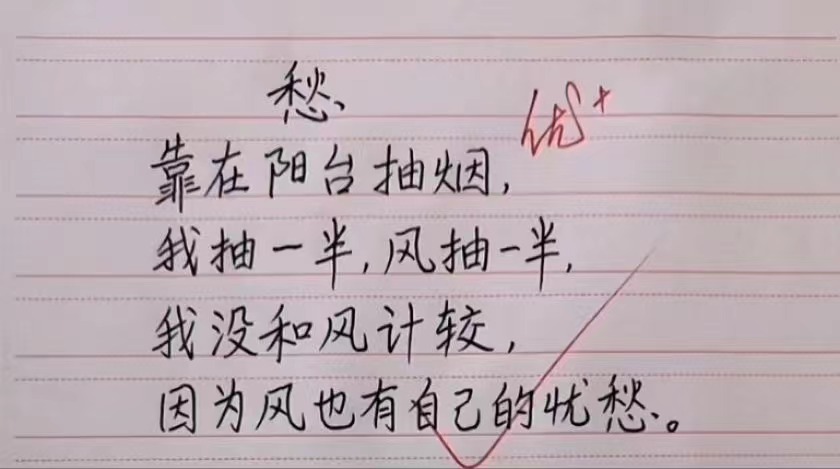 愁
优+
靠在阳台抽烟，
我抽一半，风抽一半，
我没和风计较，
因为风也有自己的忧愁。